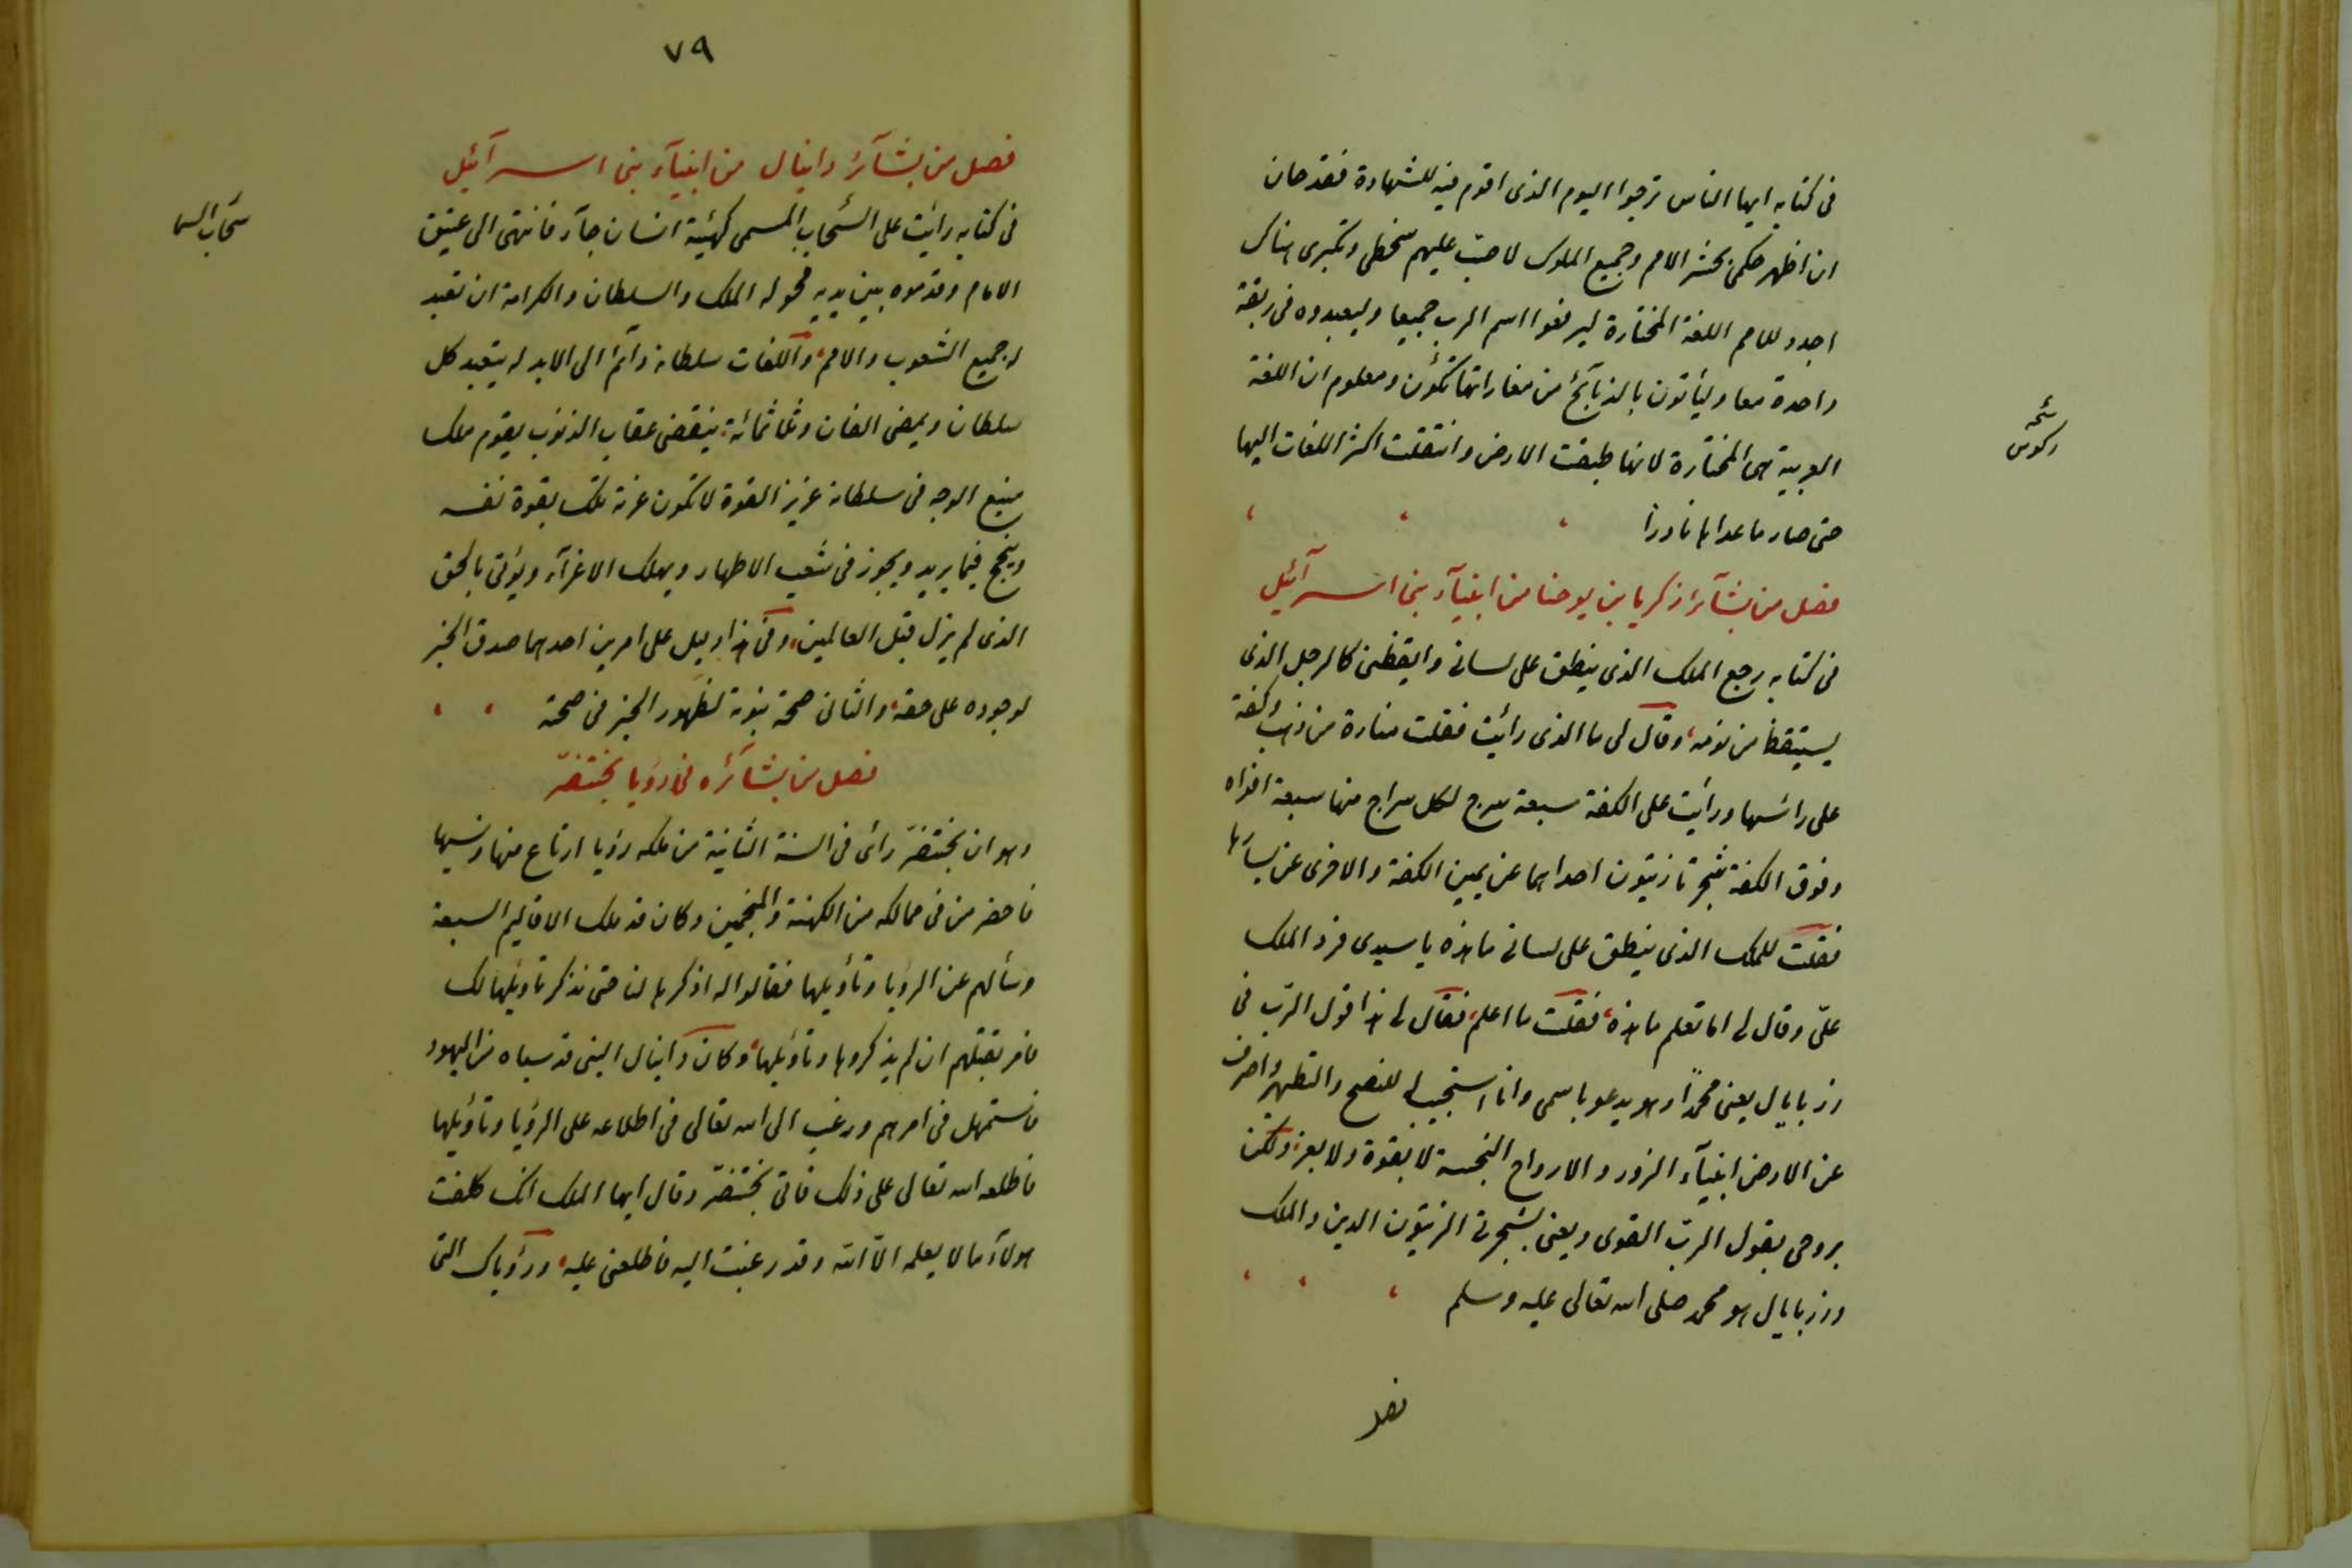 فى كتابه ايها الناس ترجوا اليوم الذى اقوم فيه للشهادة فقد حان
ان اظهر حكمى بحشر الامم وجميع الملوك لاصبّ عليهم سخطى وتكبرى هناك
اجدد للامم اللغة المختارة ليرفعوا اسم الرب جميعا وليعبدوه فى ربقة
واحدة معا وليأتون بالذبآئح من مغاراتها تكؤن ومعلوم ان اللغة
العربية هى المختارة لانها طبقت الارض وانتقلت اكثر اللغات اليها
حتى صار ما عداها نادرا
فصل من بشآئر زكريا بن يوحنا من انبيآء بنى اسرآئيل
فى كتابه رجع الملك الذى ينطق على لسانى وايقظنى كالرجل الذى
يستيقظ من نومه وقال لى ما الذى رأيت فقلت منارة من ذهب وكفة
على رأسها ورأيت على الكفة سبعة سرج لكل سراج منها سبعة افواه
وفوق الكفة شجرتا زيتون احداهما عن يمين الكفة والاخرى عن يسارها
فقلت للملك الذى ينطق على لسانى ما هذه يا سيدى فرد الملك
علىّ وقال لى اما تعلم ما هذه فقلت ما اعلم فقال لى هذا قول الرّب فى
زربايال يعنى محمدًا وهو يدعو باسمى وانا استجيب له للنصح والتطهر واصرف
عن الارض انبيآء الزور والارواح النجسة لا بقوة ولا بعز ولكن
بروحى يقول الرب القوى ويعنى بشجرتى الزيتون الدين والملك
وزربايال هو محمد صلى الله تعالى عليه وسلم
فصل
٧٩
فصل من بشآئر دانيال من انبيآء بنى اسرآئيل
فى كتابه رأيت على السّحاب المسمى كهيئة انسان جآء فانتهى الى عتيق
الايام وقدموه بين يديه فخوله الملك والسلطان والكرامة ان تعبد
له جميع الشعوب والامم واللغات سلطانه دآئم الى الابد له يتعبد كل
سلطان ويمضى الفان وثلثمائة ينقضى عقاب الذنوب يقوم ملك
منيع الوجه فى سلطانه عزيز القوة لا تكون عزته تلك بقوة نفسه
وينجح فيما يريد ويجوز فى شعب الاطهار ويهلك الاعزآء ويؤتى بالحق
الذى لم يزل قبل العالمين وفى هذا دليل على امرين احدهما صدق الخبر
لوجوده على حقه والثانى صحة نبوته لظهور الخبر فى صحته
فصل من بشآئره فى رؤيا بختنصّر
وهو ان بختنصّر رأى فى السنة الثانية من ملكه رؤيا ارتاع منها ونسيها
فاحضر من فى ممالكه من الكهنة والمنجمين وكان قد ملك الاقاليم السبعة
وسألهم عن الرؤيا وتأويلها فقالوا له اذكرها لنا حتى نذكر تاويلها لك
فامر بقتلهم ان لم يذكروها وتاويلها وكان دانيال النبى قد سباه من اليهود
فاستمهل فى امرهم ورغب الى الله تعالى فى اطلاعه على الرؤيا وتاويلها
فاطلعه الله تعالى على ذلك فاتى بختنصّر وقال ايها الملك انك كلفت
هولآء ما لا يعلمه الا الله وقد رغبت اليه فاطلعنى عليه ورؤياك التى
سحاب السما